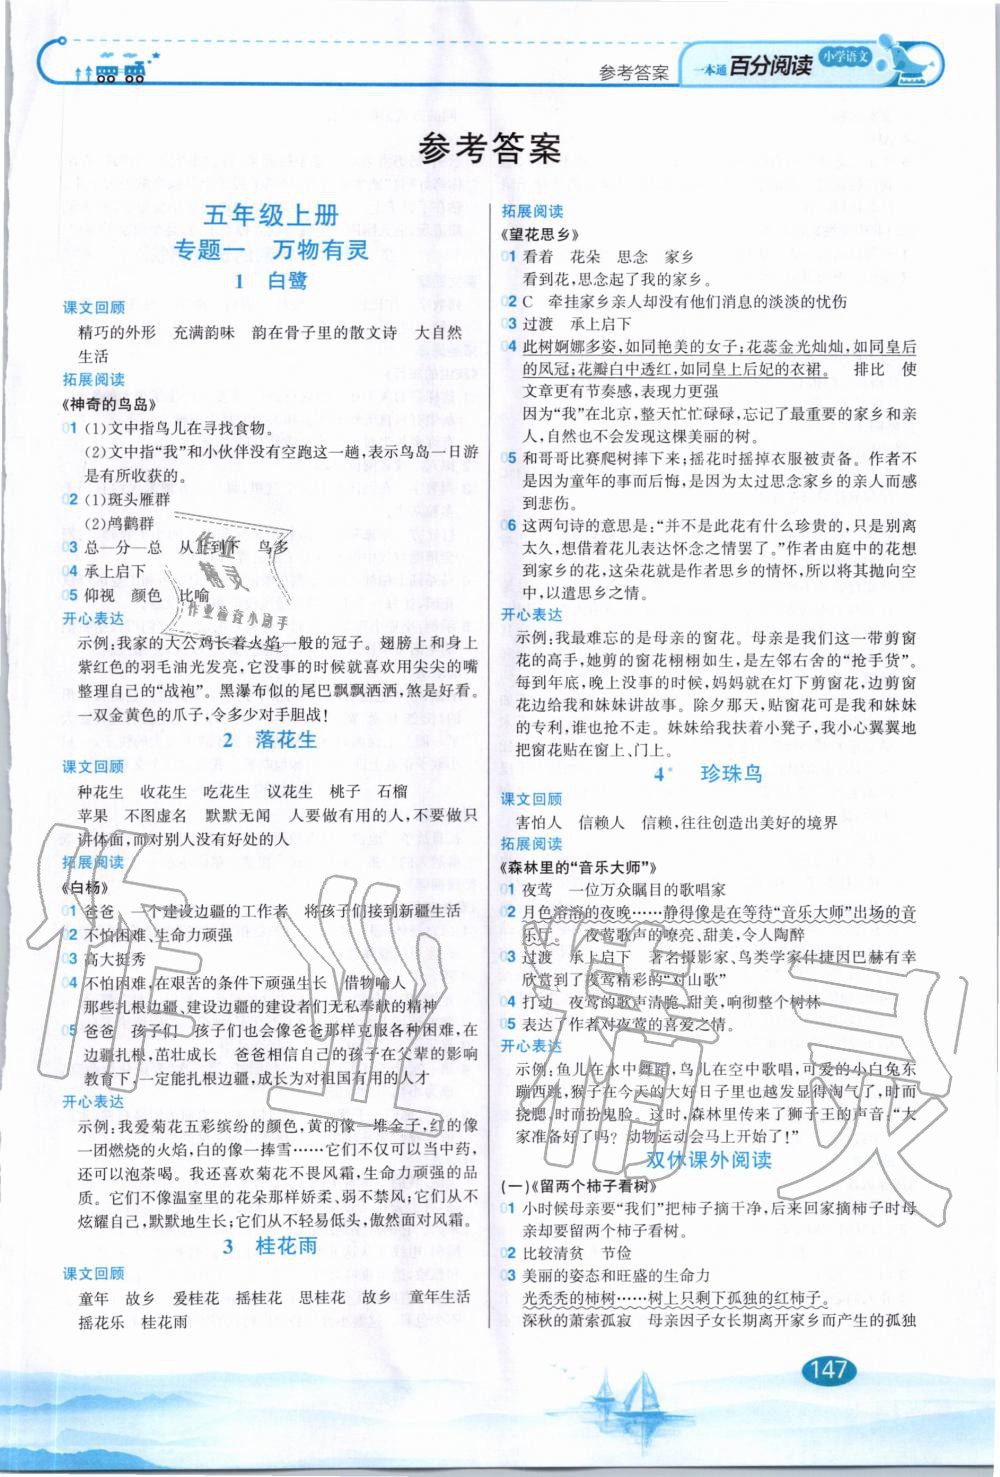 参考答案
一本通 百分阅读 小学语文
参考答案
五年级上册
专题一 万物有灵
1 白鹭
课文回顾
精巧的外形 充满韵味 韵在骨子里的散文诗 大自然
生活
拓展阅读
《神奇的鸟岛》
01 (1)文中指鸟儿在寻找食物。
(2)文中指“我”和小伙伴没有空跑这一趟,表示鸟岛一日游
是有所收获的。
02 (1)斑头雁群
(2)鸬鹚群
03 总—分—总 从上到下 鸟多
04 承上启下
05 仰视 颜色 比喻
开心表达
示例:我家的大公鸡长着火焰一般的冠子。翅膀上和身上
紫红色的羽毛油光发亮,它没事的时候就喜欢用尖尖的嘴
整理自己的“战袍”。黑瀑布似的尾巴飘飘洒洒,煞是好看。
一双金黄色的爪子,令多少对手胆战!
2 落花生
课文回顾
种花生 收花生 吃花生 议花生 桃子 石榴
苹果 不图虚名 默默无闻 人要做有用的人,不要做只
讲体面,而对别人没有好处的人
拓展阅读
《白杨》
01 爸爸 一个建设边疆的工作者 将孩子们接到新疆生活
02 不怕困难、生命力顽强
03 高大挺秀
04 不怕困难,在艰苦的条件下顽强生长 借物喻人
那些扎根边疆、建设边疆的建设者们无私奉献的精神
05 爸爸 孩子们 孩子们也会像爸爸那样克服各种困难,在
边疆扎根,茁壮成长 爸爸相信自己的孩子在父辈的影响
教育下,一定能扎根边疆,成长为对祖国有用的人才
开心表达
示例:我爱菊花五彩缤纷的颜色,黄的像一堆金子,红的像
一团燃烧的火焰,白的像一捧雪……它们不仅可以当中药,
还可以泡茶喝。我还喜欢菊花不畏风霜,生命力顽强的品
质。它们不像温室里的花朵那样娇柔、弱不禁风;它们从不
炫耀自己,默默地生长;它们从不轻易低头,傲然面对风霜。
3 桂花雨
课文回顾
童年 故乡 爱桂花 摇桂花 思桂花 故乡 童年生活
摇花乐 桂花雨
拓展阅读
《望花思乡》
01 看着 花朵 思念 家乡
看到花,思念起了我的家乡。
02 C 牵挂家乡亲人却没有他们消息的淡淡的忧伤
03 过渡 承上启下
04 此树婀娜多姿,如同艳美的女子;花蕊金光灿灿,如同皇后
的凤冠;花瓣白中透红,如同皇上后妃的衣裙。 排比 使
文章更有节奏感,表现力更强
因为“我”在北京,整天忙忙碌碌,忘记了最重要的家乡和亲
人,自然也不会发现这棵美丽的树。
05 和哥哥比赛爬树摔下来;摇花时摇掉衣服被责备。作者不
是因为童年的事而后悔,是因为太过思念家乡的亲人而感
到悲伤。
06 这两句诗的意思是:“并不是此花有什么珍贵的,只是别离
太久,想借着花儿表达怀念之情罢了。”作者由庭中的花想
到家乡的花,这朵花就是作者思乡的情怀,所以将其抛向空
中,以遣思乡之情。
开心表达
示例:我最难忘的是母亲的窗花。母亲是我们这一带剪窗
花的高手,她剪的窗花栩栩如生,是左邻右舍的“抢手货”。
每到年底,晚上没事的时候,妈妈就在灯下剪窗花,边剪窗
花边给我和妹妹讲故事。除夕那天,贴窗花可是我和妹妹
的专利,谁也抢不走。妹妹给我扶着小凳子,我小心翼翼地
把窗花贴在窗上、门上。
4* 珍珠鸟
课文回顾
害怕人 信赖人 信赖,往往创造出美好的境界
拓展阅读
《森林里的“音乐大师”》
01 夜莺 一位万众瞩目的歌唱家
02 月色溶溶的夜晚……静得像是在等待“音乐大师”出场的音
乐厅。 夜莺歌声的嘹亮、甜美,令人陶醉
03 过渡 承上启下 著名摄影家、鸟类学家什捷因巴赫有幸
欣赏到了夜莺精彩的“对山歌”
04 打动 夜莺的歌声清脆、甜美,响彻整个树林
05 表达了作者对夜莺的喜爱之情。
开心表达
示例:鱼儿在水中舞蹈,鸟儿在空中歌唱,可爱的小白兔东
蹦西跳,猴子在今天的大好日子里也越发显得淘气了,时而
挠腮,时而扮鬼脸。这时,森林里传来了狮子王的声音:“大
家准备好了吗?动物运动会马上开始了!”
双休课外阅读
(一)《留两个柿子看树》
01 小时候母亲要“我们”把柿子摘干净,后来回家摘柿子时母
亲却要留两个柿子看树。
02 比较清贫 节俭
03 美丽的姿态和旺盛的生命力
光秃秃的柿树……树上只剩下孤独的红柿子。
深秋的萧索孤寂 母亲因子女长期离开家乡而产生的孤独
147
作业精灵
作业检查小助手
作业精灵